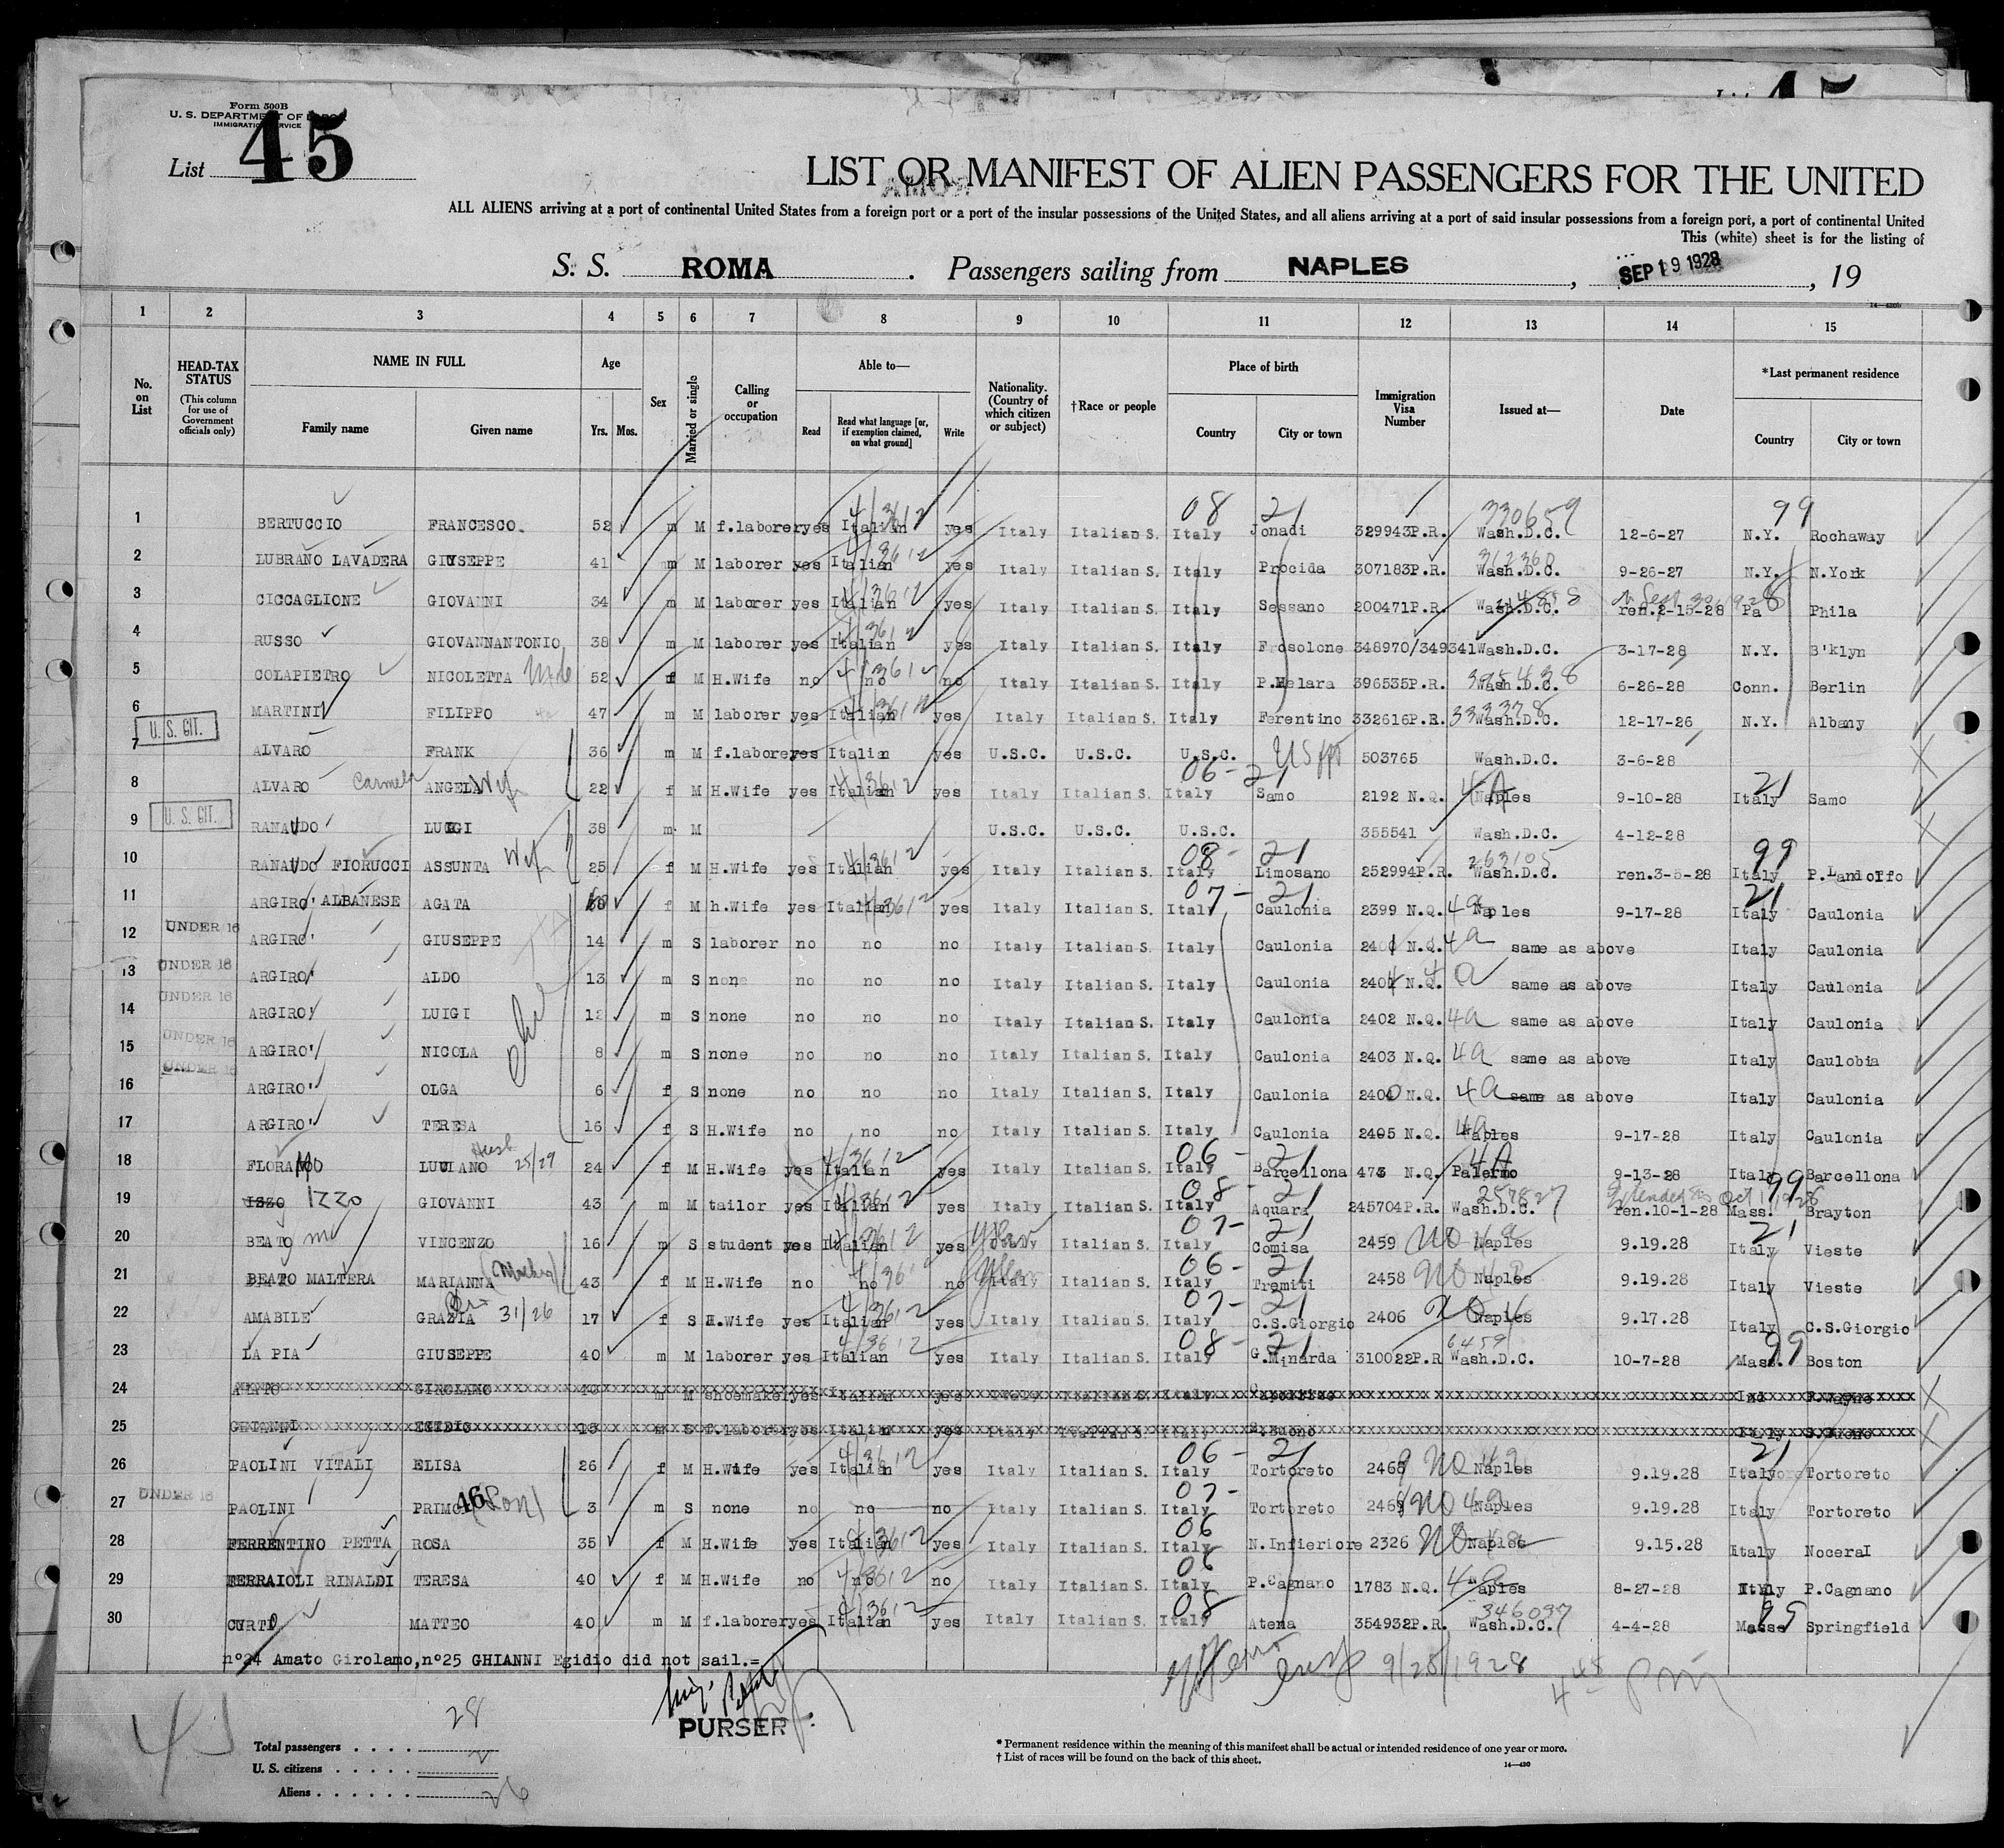 Form 500B
U. S. DEPARTMENT OF LABOR
IMMIGRATION SERVICE
List 45
45
LIST OR MANIFEST OF ALIEN PASSENGERS FOR THE UNITED
ALL ALIENS arriving at a port of continental United States from a foreign port or a port of the insular possessions of the United States, and all aliens arriving at a port of said insular possessions from a foreign port, a port of continental United
This (white) sheet is for the listing of
S. S. ROMA. Passengers sailing from NAPLES, SEP 19 1928, 19
1 2 3 4 5 6 7 8 9 10 11 12 13 14 15
No. on List
HEAD-TAX STATUS
(This column for use of Government officials only)
NAME IN FULL
Family name Given name
Age
Yrs. Mos.
Sex
Married or single
Calling or occupation
Able to—
Read Read what language [or, if exemption claimed, on what ground] Write
Nationality. (Country of which citizen or subject)
†Race or people
Place of birth
Country City or town
Immigration Visa Number
Issued at—
Date
*Last permanent residence
Country City or town
08 21 330659 99
1 BERTUCCIO FRANCESCO 52 m M f.laborer yes Italian yes Italy Italian S. Italy Jonadi 329943P.R. Wash.D.C. 12-6-27 N.Y. Rochaway
2 LUBRANO LAVADERA GIUSEPPE 41 m M laborer yes Italian yes Italy Italian S. Italy Procida 307183P.R. Wash.D.C. 9-26-27 N.Y. N.York
3 CICCAGLIONE GIOVANNI 34 m M laborer yes Italian yes Italy Italian S. Italy Sessano 200471P.R. Wash.D.C. ren.2-15-28 Pa Phila
4 RUSSO GIOVANNANTONIO 38 m M laborer yes Italian yes Italy Italian S. Italy Frosolone 348970/349341 Wash.D.C. 3-17-28 N.Y. B'klyn
5 COLAPIETRO NICOLETTA 52 f M H.Wife no no no Italy Italian S. Italy P.Melara 396535P.R. Wash.D.C. 6-26-28 Conn. Berlin
6 MARTINI FILIPPO 47 m M laborer yes Italian yes Italy Italian S. Italy Ferentino 332616P.R. Wash.D.C. 12-17-26 N.Y. Albany
U. S. CIT.
7 ALVARO FRANK 36 m M f.laborer yes Italian yes U.S.C. U.S.C. U.S.C. 503765 Wash.D.C. 3-6-28
06- 21 4A 21
8 ALVARO Carmela ANGELA Wife 22 f M H.Wife yes Italian yes Italy Italian S. Italy Samo 2192 N.Q. Naples 9-10-28 Italy Samo
U. S. CIT.
9 RANAUDO LUIGI 38 m M U.S.C. U.S.C. U.S.C. 355541 Wash.D.C. 4-12-28
08- 21 263105 99
10 RANAUDO FIORUCCI ASSUNTA Wife 25 f M H.Wife yes Italian yes Italy Italian S. Italy Limosano 252994P.R. Wash.D.C. ren.3-5-28 Italy P.Landolfo
07- 21 4a 21
11 ARGIRO' ALBANESE AGATA f M h.Wife yes Italian yes Italy Italian S. Italy Caulonia 2399 N.Q. Naples 9-17-28 Italy Caulonia
UNDER 16
12 ARGIRO' GIUSEPPE 14 m S laborer no no no Italy Italian S. Italy Caulonia N.Q. 4a same as above Italy Caulonia
UNDER 16
13 ARGIRO' ALDO 13 m S none no no no Italy Italian S. Italy Caulonia N.Q. 4a same as above Italy Caulonia
UNDER 16
14 ARGIRO' LUIGI 12 m S none no no no Italy Italian S. Italy Caulonia 2402 N.Q. 4a same as above Italy Caulonia
UNDER 16
15 ARGIRO' NICOLA 8 m S none no no no Italy Italian S. Italy Caulonia 2403 N.Q. 4a same as above Italy Caulobia
UNDER 16
16 ARGIRO' OLGA 6 f S none no no no Italy Italian S. Italy Caulonia N.Q. 4a same as above Italy Caulonia
17 ARGIRO' TERESA 16 f S H.Wife no no no Italy Italian S. Italy Caulonia 2405 N.Q. Naples 9-17-28 Italy Caulonia
06- 21 4A
18 LUCIANO 24 f M H.Wife yes Italian yes Italy Italian S. Italy Barcellona 473 N.Q. Palermo 9-13-28 Italy Barcellona
08- 21 99
19 ISZO IZZO GIOVANNI 43 m M tailor yes Italian yes Italy Italian S. Italy Aquara 245704P.R. Wash.D.C. ren.10-1-28 Mass. Brayton
07- 21 21
20 BEATO VINCENZO 16 m S student yes Italian yes Italian S. Italy Comisa 2459 Naples 9.19.28 Italy Vieste
06- 21
21 BEATO MALTERA MARIANNA (Mother) 43 f M H.Wife no no no Italian S. Italy Tremiti 2458 Naples 9.19.28 Italy Vieste
07- 21
22 AMABILE GRAZIA 31/26 17 f S H.Wife yes Italian yes Italy Italian S. Italy C.S.Giorgio 2406 Naples 9.17.28 Italy C.S.Giorgio
08- 21 6459 99
23 LA PIA GIUSEPPE 40 m M laborer yes Italian yes Italy Italian S. Italy G.Minarda 310022P.R Wash.D.C. 10-7-28 Mass. Boston
24 GIROLAMO m M shoemaker yes Italian yes Italy Italian S. Italy Ind
25 EGIDIO m S f.laborer yes Italian yes Italy Italian S. Italy S.Buono Italy
06- 21 21
26 PAOLINI VITALI ELISA 26 f M H.Wife yes Italian yes Italy Italian S. Italy Tortoreto Naples 9.19.28 Italy Tortoreto
UNDER 16
27 PAOLINI PRIMO (Son) 3 m S none no no no Italy Italian S. Italy Tortoreto Naples 9.19.28 Italy Tortoreto
28 FERRENTINO PETTA ROSA 35 f M H.Wife yes Italian yes Italy Italian S. Italy N.Infieriore 2326 Naples 9.15.28 Italy NoceraI
29 FERRAIOLI RINALDI TERESA 40 f M H.Wife no no no Italy Italian S. Italy P.Cagnano 1783 N.Q. Naples 8-27-28 Italy P.Cagnano
30 CURTO MATTEO 40 m M f.laborer yes Italian yes Italy Italian S. Italy Atena 354932P.R. Wash.D.C. 4-4-28 Springfield
nº24 Amato Girolamo,nº25 GHIANNI Egidio did not sail.=
9/28/1928
PURSER
Total passengers . . . . 28
U. S. citizens . . . . . 2
Aliens . . . . . . 26
* Permanent residence within the meaning of this manifest shall be actual or intended residence of one year or more.
† List of races will be found on the back of this sheet.
14—430